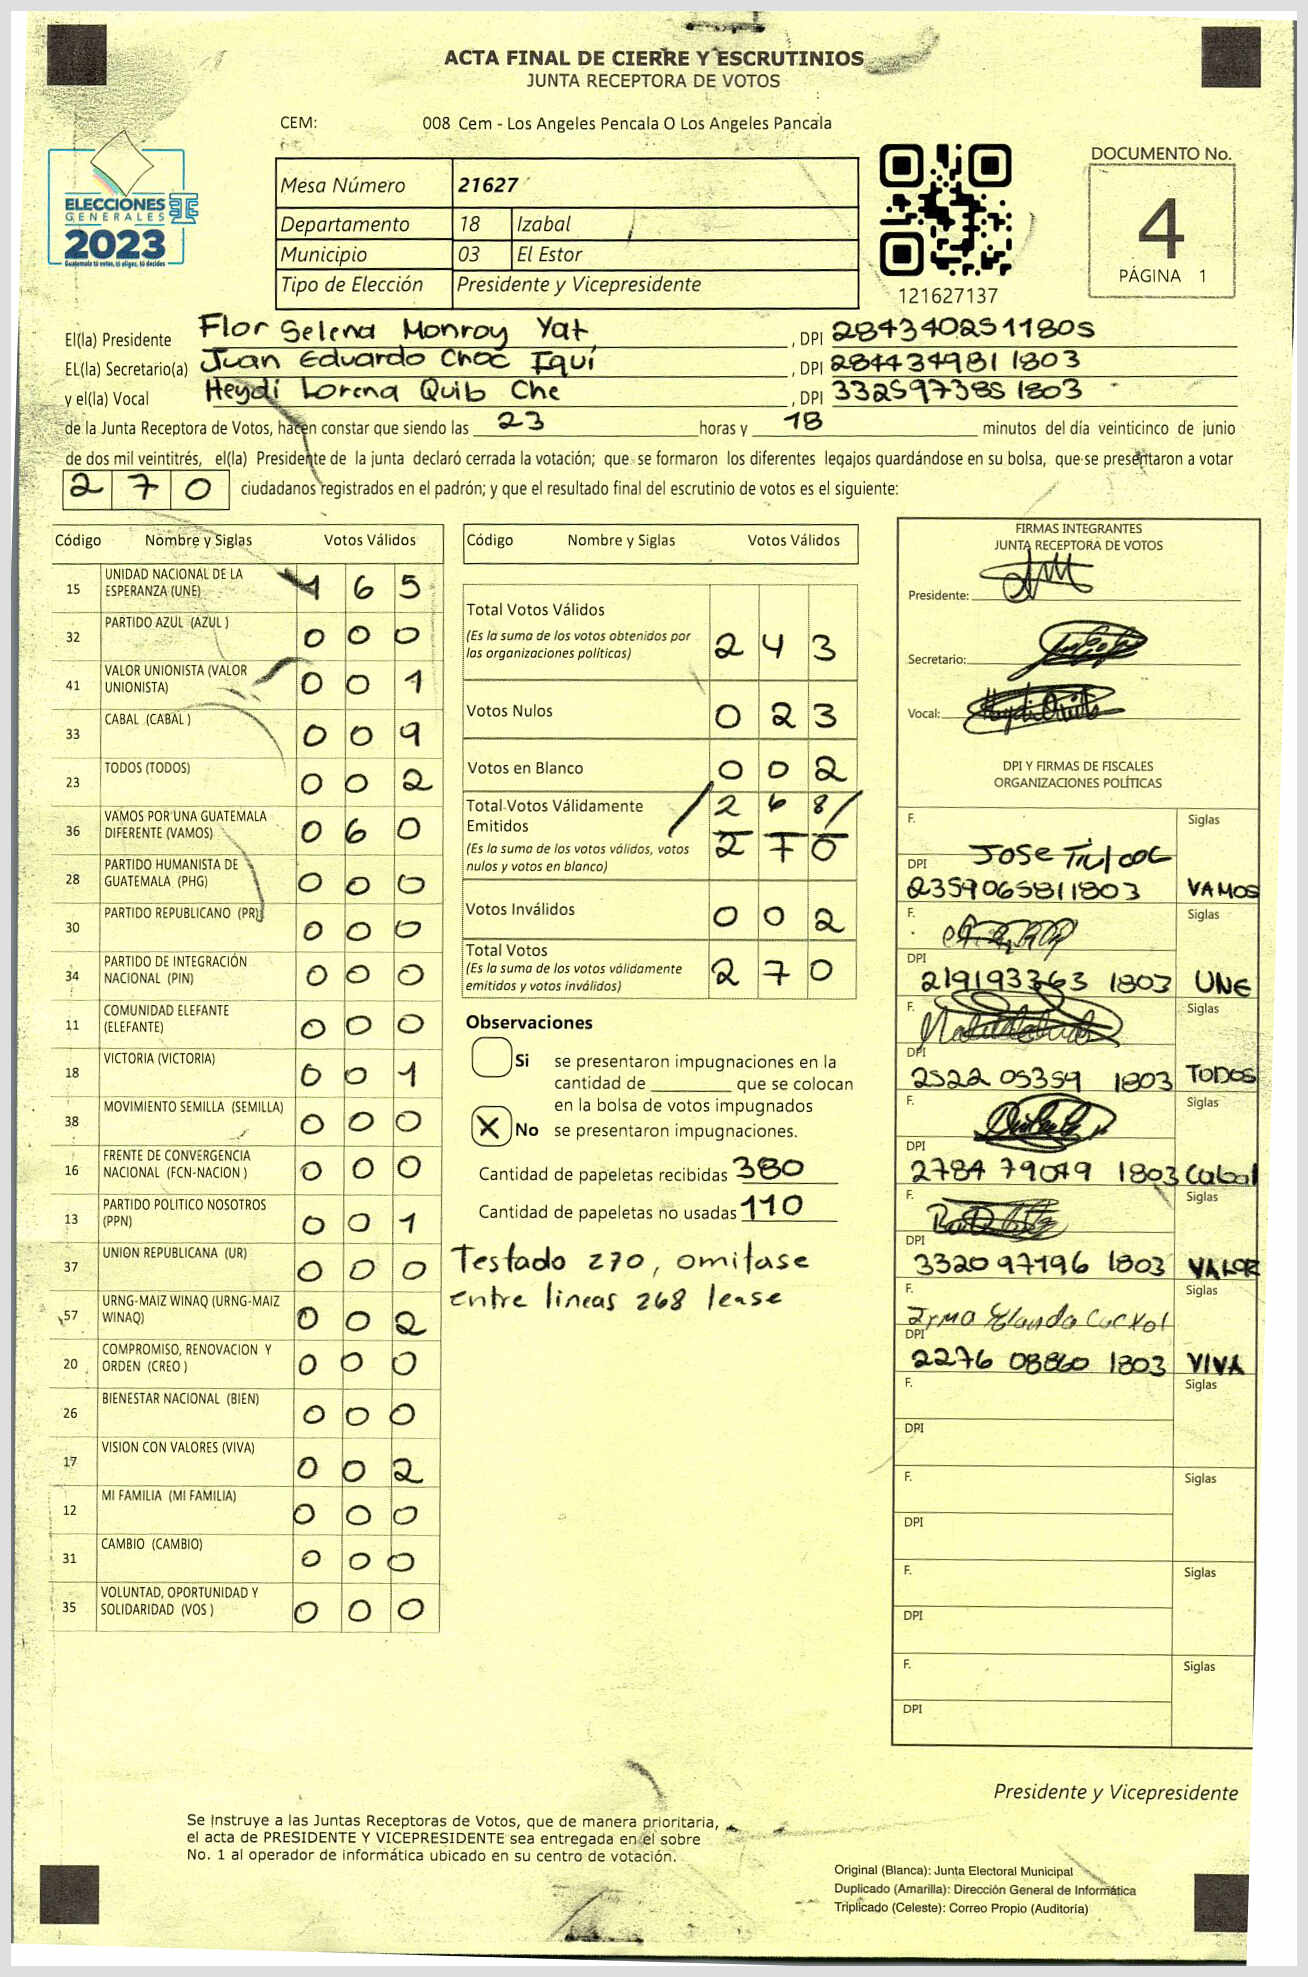 ACTA FINAL DE CIERRE Y ESCRUTINIOS
JUNTA RECEPTORA DE VOTOS
CEM: 008 Cem - Los Angeles Pencala O Los Angeles Pancala
ELECCIONES
GENERALES
2023
Guatemala tú votas, tú eliges, tú decides
Mesa Número 21627
Departamento 18 Izabal
Municipio 03 El Estor
Tipo de Elección Presidente y Vicepresidente
121627137
DOCUMENTO No.
4
PÁGINA 1
El(la) Presidente Flor Selena Monroy Yat, DPI 2843402511805
EL(la) Secretario(a) Juan Eduardo Choc Iquí, DPI 284434981 1803
y el(la) Vocal Heydi Lorena Quib Che, DPI 332597385 1803
de la Junta Receptora de Votos, hacen constar que siendo las 23 horas y 18 minutos del día veinticinco de junio
de dos mil veintitrés, el(la) Presidente de la junta declaró cerrada la votación; que se formaron los diferentes legajos guardándose en su bolsa, que se presentaron a votar
270 ciudadanos registrados en el padrón; y que el resultado final del escrutinio de votos es el siguiente:
Código Nombre y Siglas Votos Válidos
15 UNIDAD NACIONAL DE LA ESPERANZA (UNE) 1 6 5
32 PARTIDO AZUL (AZUL ) 0 0 0
41 VALOR UNIONISTA (VALOR UNIONISTA) 0 0 1
33 CABAL (CABAL ) 0 0 9
23 TODOS (TODOS) 0 0 2
36 VAMOS POR UNA GUATEMALA DIFERENTE (VAMOS) 0 6 0
28 PARTIDO HUMANISTA DE GUATEMALA (PHG) 0 0 0
30 PARTIDO REPUBLICANO (PR) 0 0 0
34 PARTIDO DE INTEGRACIÓN NACIONAL (PIN) 0 0 0
11 COMUNIDAD ELEFANTE (ELEFANTE) 0 0 0
18 VICTORIA (VICTORIA) 0 0 1
38 MOVIMIENTO SEMILLA (SEMILLA) 0 0 0
16 FRENTE DE CONVERGENCIA NACIONAL (FCN-NACION ) 0 0 0
13 PARTIDO POLITICO NOSOTROS (PPN) 0 0 1
37 UNION REPUBLICANA (UR) 0 0 0
57 URNG-MAIZ WINAQ (URNG-MAIZ WINAQ) 0 0 2
20 COMPROMISO, RENOVACION Y ORDEN (CREO ) 0 0 0
26 BIENESTAR NACIONAL (BIEN) 0 0 0
17 VISION CON VALORES (VIVA) 0 0 2
12 MI FAMILIA (MI FAMILIA) 0 0 0
31 CAMBIO (CAMBIO) 0 0 0
35 VOLUNTAD, OPORTUNIDAD Y SOLIDARIDAD (VOS ) 0 0 0
Código Nombre y Siglas Votos Válidos
Total Votos Válidos
(Es la suma de los votos obtenidos por
las organizaciones políticas) 2 4 3
Votos Nulos 0 2 3
Votos en Blanco 0 0 2
Total Votos Válidamente / 2 6 8 /
Emitidos
(Es la suma de los votos válidos, votos 2 7 0
nulos y votos en blanco)
Votos Inválidos 0 0 2
Total Votos
(Es la suma de los votos válidamente 2 7 0
emitidos y votos inválidos)
Observaciones
Si se presentaron impugnaciones en la
cantidad de ________ que se colocan
en la bolsa de votos impugnados
X No se presentaron impugnaciones.
Cantidad de papeletas recibidas 380
Cantidad de papeletas no usadas 110
Testado 270, omitase
entre lineas 268 lease
FIRMAS INTEGRANTES
JUNTA RECEPTORA DE VOTOS
Presidente:
Secretario:
Vocal:
DPI Y FIRMAS DE FISCALES
ORGANIZACIONES POLÍTICAS
F. Siglas
DPI 2359065811803 VAMOS
F. Siglas
DPI 219193363 1803 UNE
F. Siglas
DPI 2522 05359 1803 TODOS
F. Siglas
DPI 2784 79049 1803 Cabal
F. Siglas
DPI 3320 97196 1803 VALOR
F. Siglas
DPI 2276 08860 1803 VIVA
F. Siglas
DPI
F. Siglas
DPI
F. Siglas
DPI
F. Siglas
DPI
Presidente y Vicepresidente
Se Instruye a las Juntas Receptoras de Votos, que de manera prioritaria,
el acta de PRESIDENTE Y VICEPRESIDENTE sea entregada en el sobre
No. 1 al operador de informática ubicado en su centro de votación.
Original (Blanca): Junta Electoral Municipal
Duplicado (Amarilla): Dirección General de Informática
Triplicado (Celeste): Correo Propio (Auditoria)